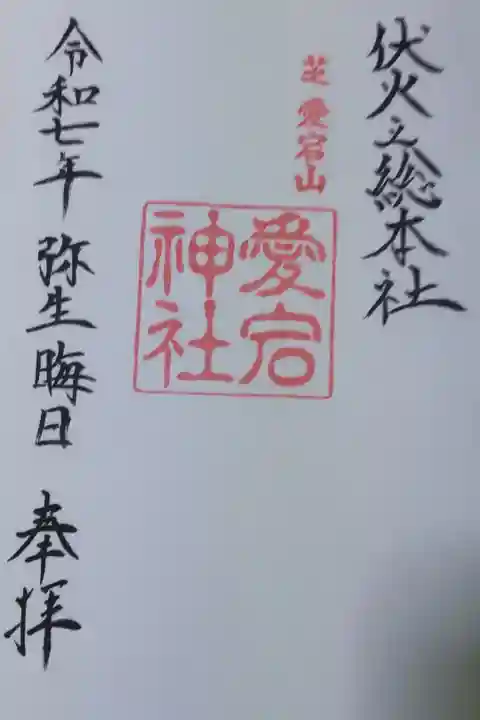 伏火之総本社
芝愛宕山
愛宕
神社
令和七年 弥生 晦日 奉拝